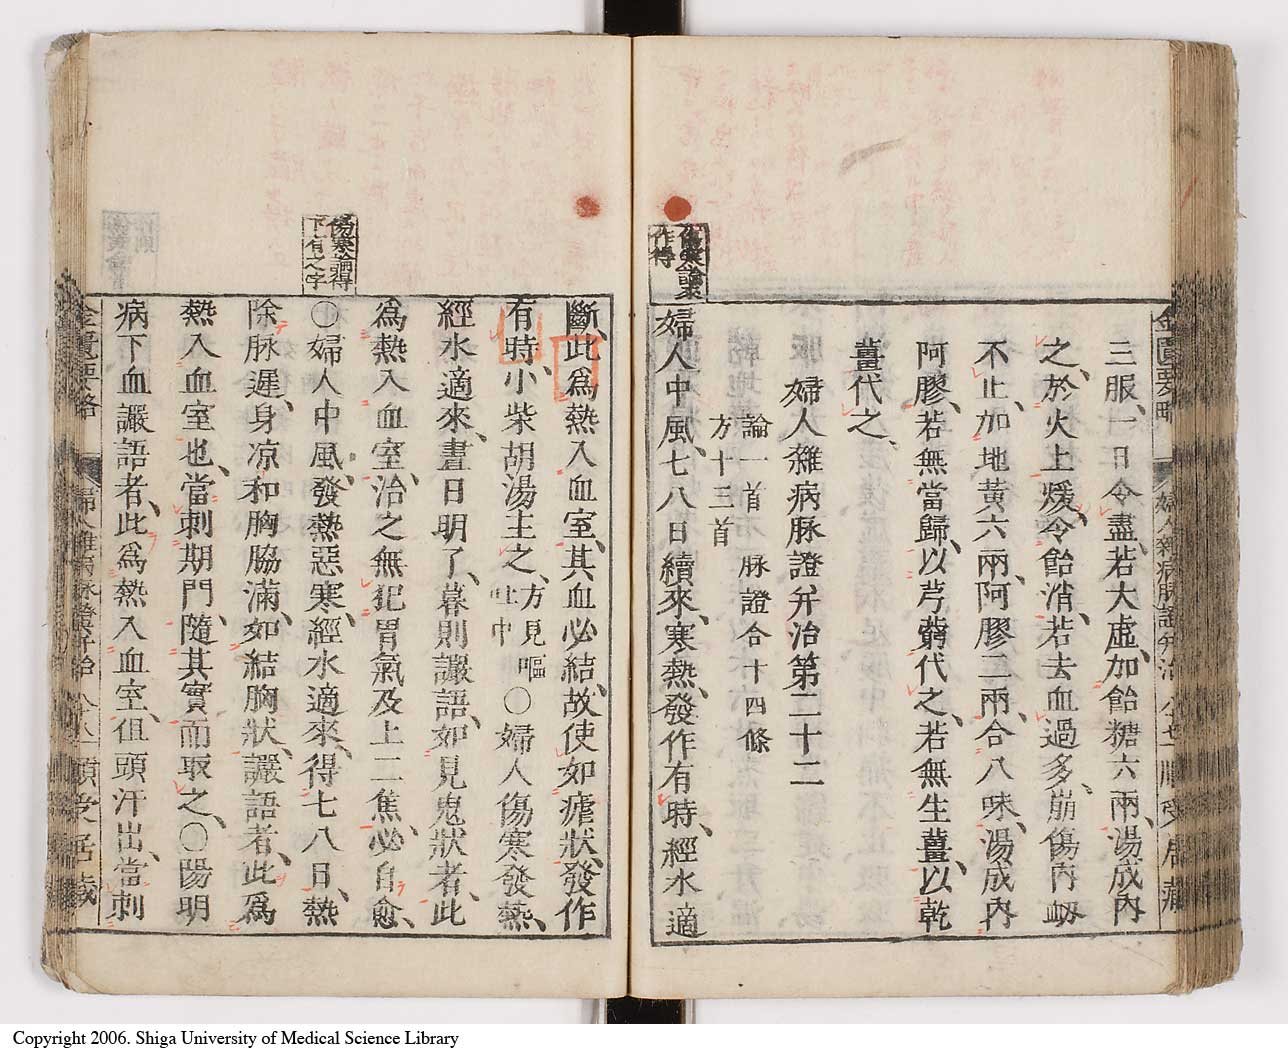 金匱要略
婦人雜病脉證并治
三服、一日令盡、若大虛、加飴糖六兩、湯成內
之、於火上煖、令飴消、若去血過多、崩傷內衂
不止、加地黃六兩、阿膠二兩、合八味、湯成內
阿膠、若無當歸、以芎藭代之、若無生薑、以乾
薑代之、
婦人雜病脉證并治第二十二
論一首 脉證合十四條
方十三首
傷寒論來
作得
婦人中風、七八日續來、寒熱、發作有時、經水適
斷、此爲熱入血室、其血必結、故使如瘧狀、發作
有時、小柴胡湯主之、方見嘔吐中○婦人傷寒發熱、
經水適來、晝日明了、暮則讝語、如見鬼狀者、此
爲熱入血室、治之無犯胃氣及上二焦、必自愈、
傷寒論得
下有之字
○婦人中風、發熱惡寒、經水適來、得七八日、熱
除脉遲、身凉和胸脇滿、如結胸狀、讝語者、此爲
熱入血室也、當刺期門、隨其實而取之、○陽明
病下血讝語者、此爲熱入血室、但頭汗出、當刺
金匱要略
婦人雜病脉證并治
Copyright 2006. Shiga University of Medical Science Library